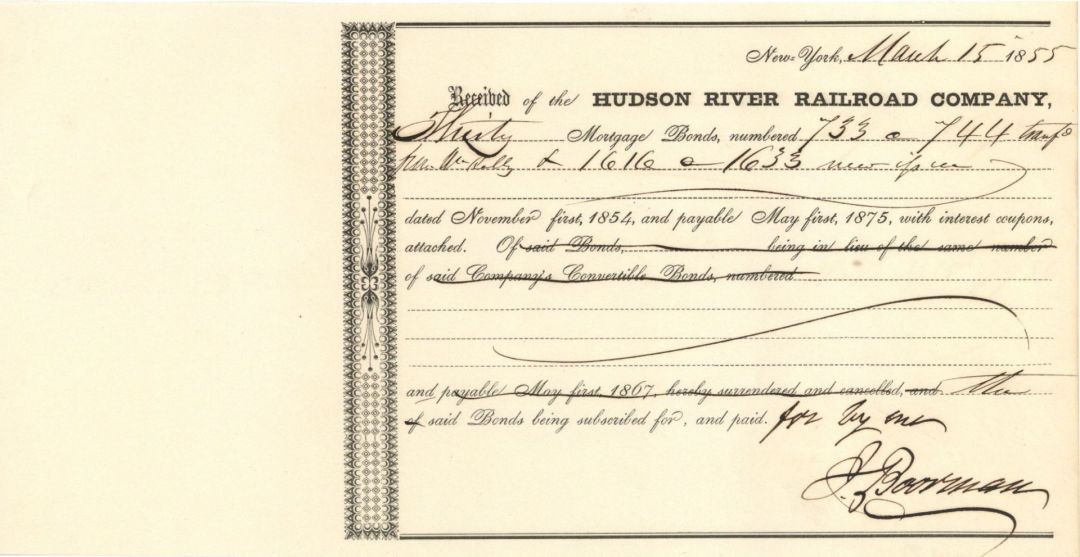 New-York, March 15 1855
Received of the HUDSON RIVER RAILROAD COMPANY,
Thirty Mortgage Bonds, numbered 733 a 744 transfd
from Wm Kelly & 1616 a 1633 new issue
dated November first, 1854, and payable May first, 1875, with interest coupons,
attached. Of said Bonds, being in lieu of the same number
of said Company's Convertible Bonds, numbered
and payable May first, 1867, hereby surrendered and cancelled, and the
of said Bonds being subscribed for, and paid. for by me
J. Boorman